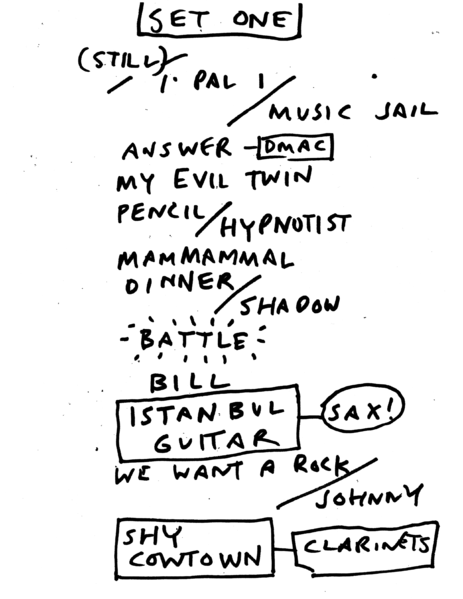 SET ONE
(STILL)
1. PAL 1
MUSIC JAIL
ANSWER - DMAC
MY EVIL TWIN
PENCIL / HYPNOTIST
MAMMAMMAL
DINNER /
SHADOW
BATTLE
BILL
ISTANBUL SAX!
GUITAR
WE WANT A ROCK
JOHNNY
SHY
COWTOWN CLARINETS